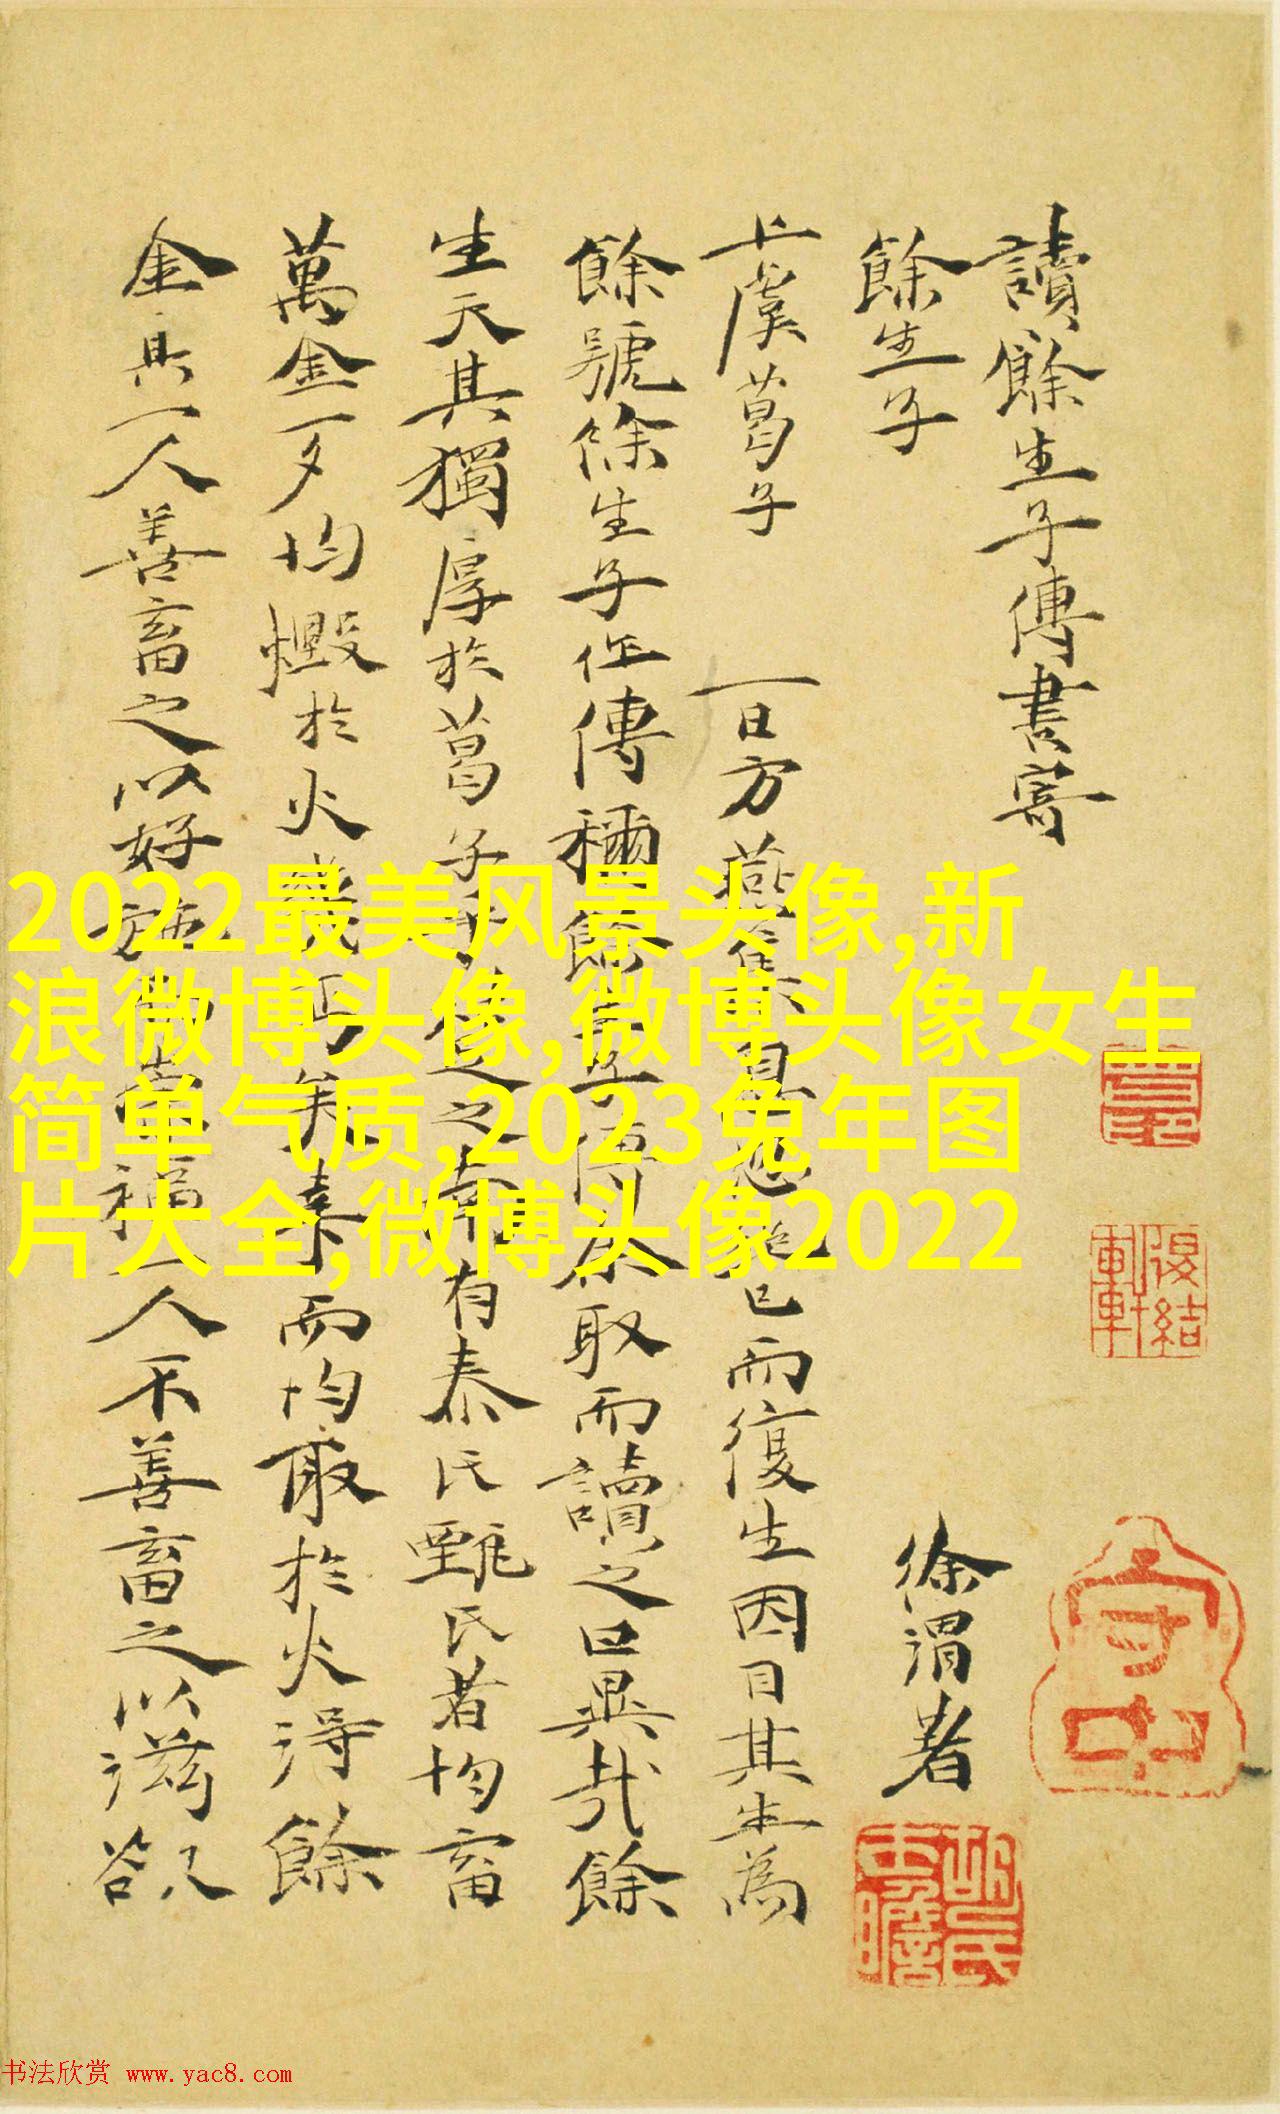 讀餘生子傳書寄
餘生子 徐渭著
上虞葛子 一日方燕集息忽 已而復生因目其生為
餘號餘生子作傳稱餘生子傳余取而讀之曰異哉餘
生天其獨厚於葛子 之南有泰氏甄氏者均畜
萬金一夕均燬於火 矣 而均取於火得餘
金其一人善畜之以好 福一人不善畜之以滋欲
2022最美风景头像,新
浪微博头像,微博头像女生
简单气质,2023兔年图
片大全,微博头像2022
守中
书法欣赏 www.yac8.com